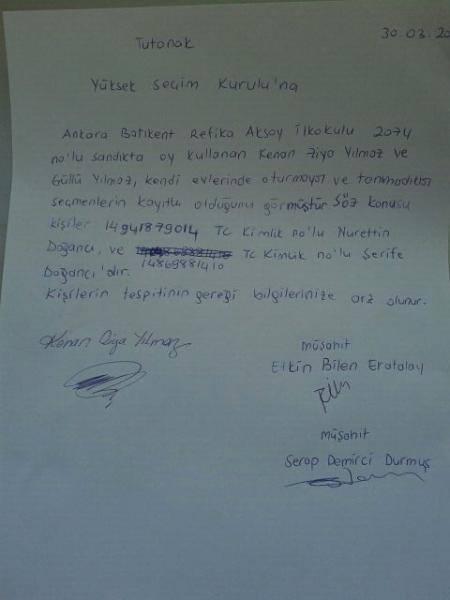 30.03.20
Tutanak
Yüksek Seçim Kurulu'na
Ankara Batıkent Refika Aksoy İlkokulu 2074
no'lu sandıkta oy kullanan Kenan Ziya Yılmaz ve
Güllü Yılmaz, kendi evlerinde oturmayan ve tanımadıkları
seçmenlerin kayıtlı olduğunu görmüştür. Söz konusu
kişiler 14941879014 TC Kimlik no'lu Nurettin
Doğancı, ve TC Kimlik no'lu Şerife
14869881410
Doğancı'dır.
Kişilerin tespitinin gereği bilgilerinize arz olunur.
Kenan Ziya Yılmaz
müşahit
Etkin Bilen Eratalay
müşahit
Serap Demirci Durmuş